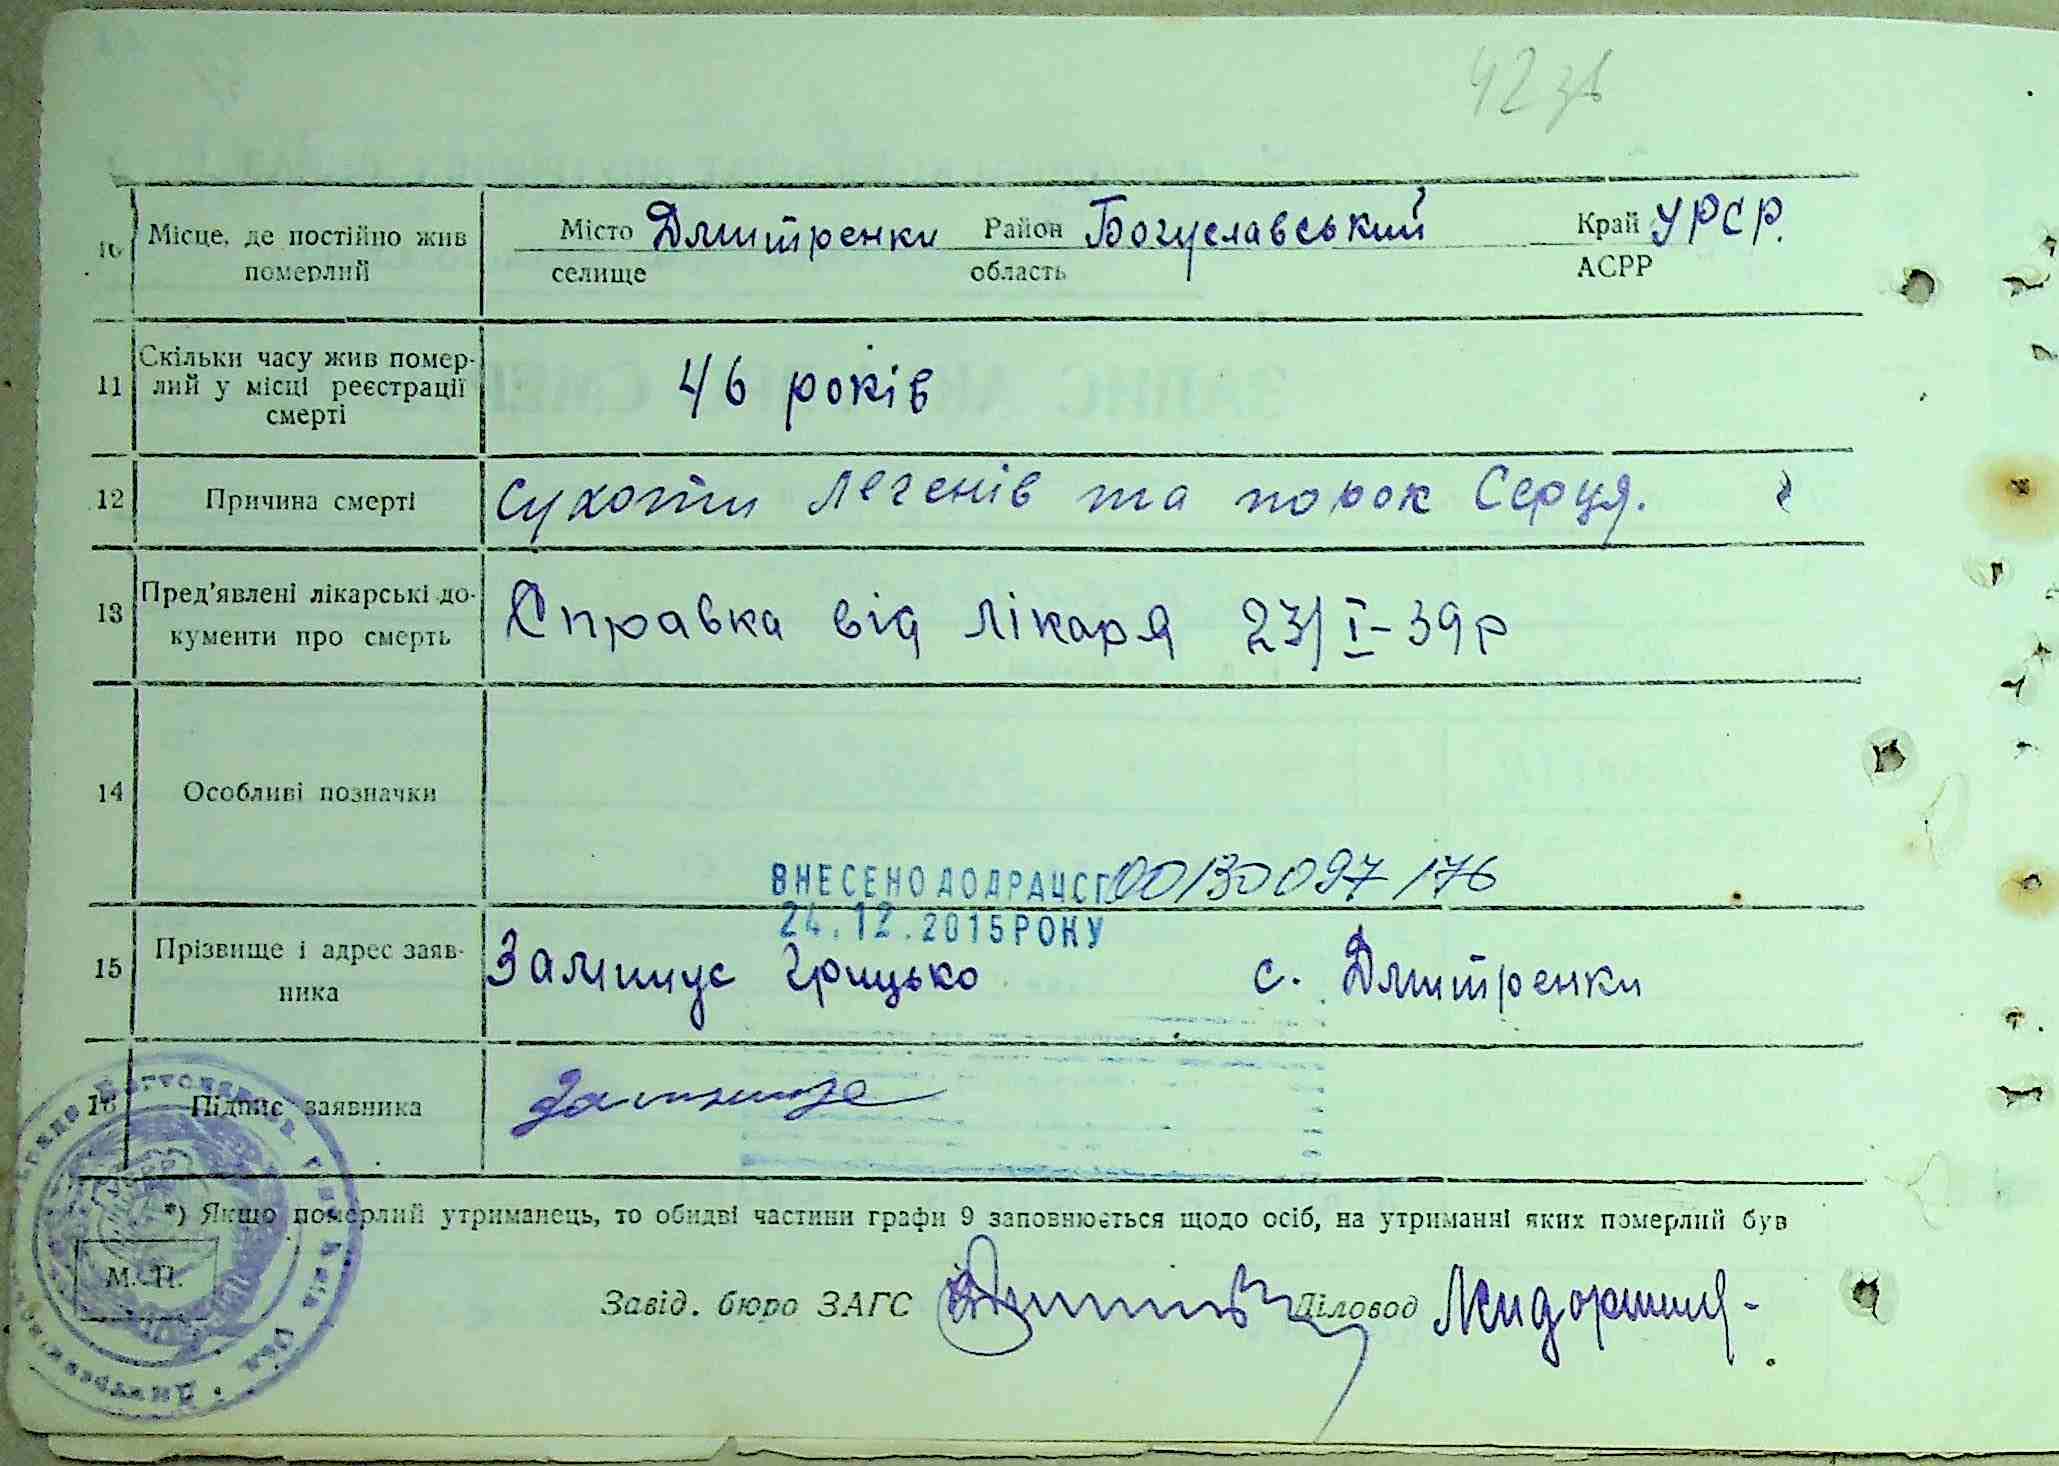 42 зв
10 Місце, де постійно жив померлий Місто селище Дмитренки Район область Богуславський Край АСРР УРСР.
11 Скільки часу жив помер-
лий у місці реєстрації
смерті
46 років
12 Причина смерті Сухоти легенів та порок Серця.
13 Пред'явлені лікарські до-
кументи про смерть
Справка від лікаря 23/I-39р
14 Особливі позначки
ВНЕСЕНО ДО ДРАЦСГ 00130097176
24.12.2015 РОКУ
15 Прізвище і адрес заяв-
ника
Заминус Грицько с. Дмитренки
16 Підпис заявника
*) Якщо померлий утриманець, то обидві частини графи 9 заповнюється щодо осіб, на утриманні яких померлий був
М. П.
Завід. бюро ЗАГС Діловод